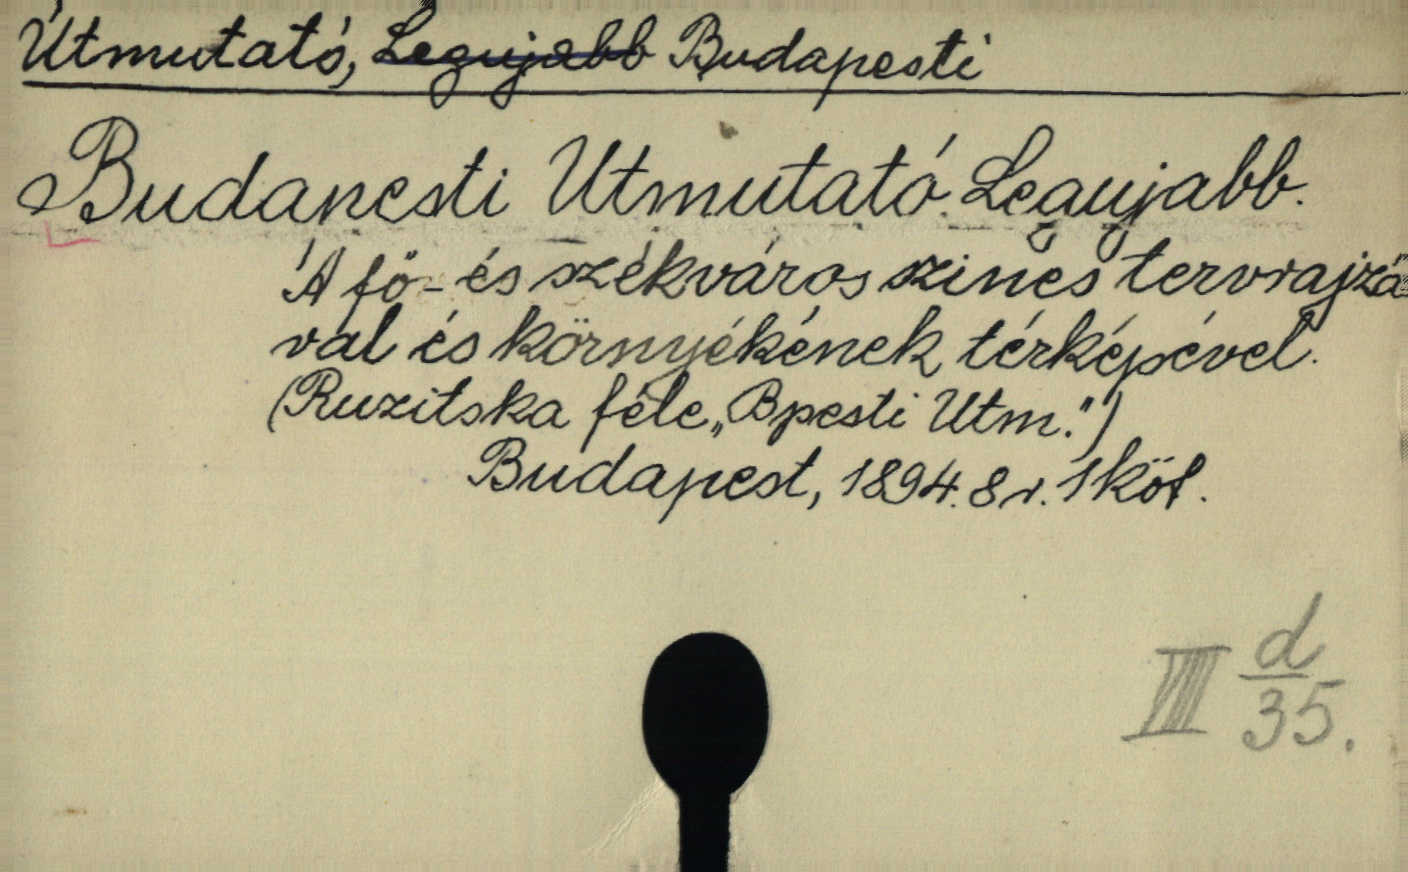 Útmutató, Legujabb Budapesti
Budapesti Utmutató Legujabb.
A fő- és székváros szines tervrajzá
val és környékének térképével.
(Ruzitska féle „Bpesti Utm.")
Budapest, 1894. 8 r. 1 köt.
d
35.